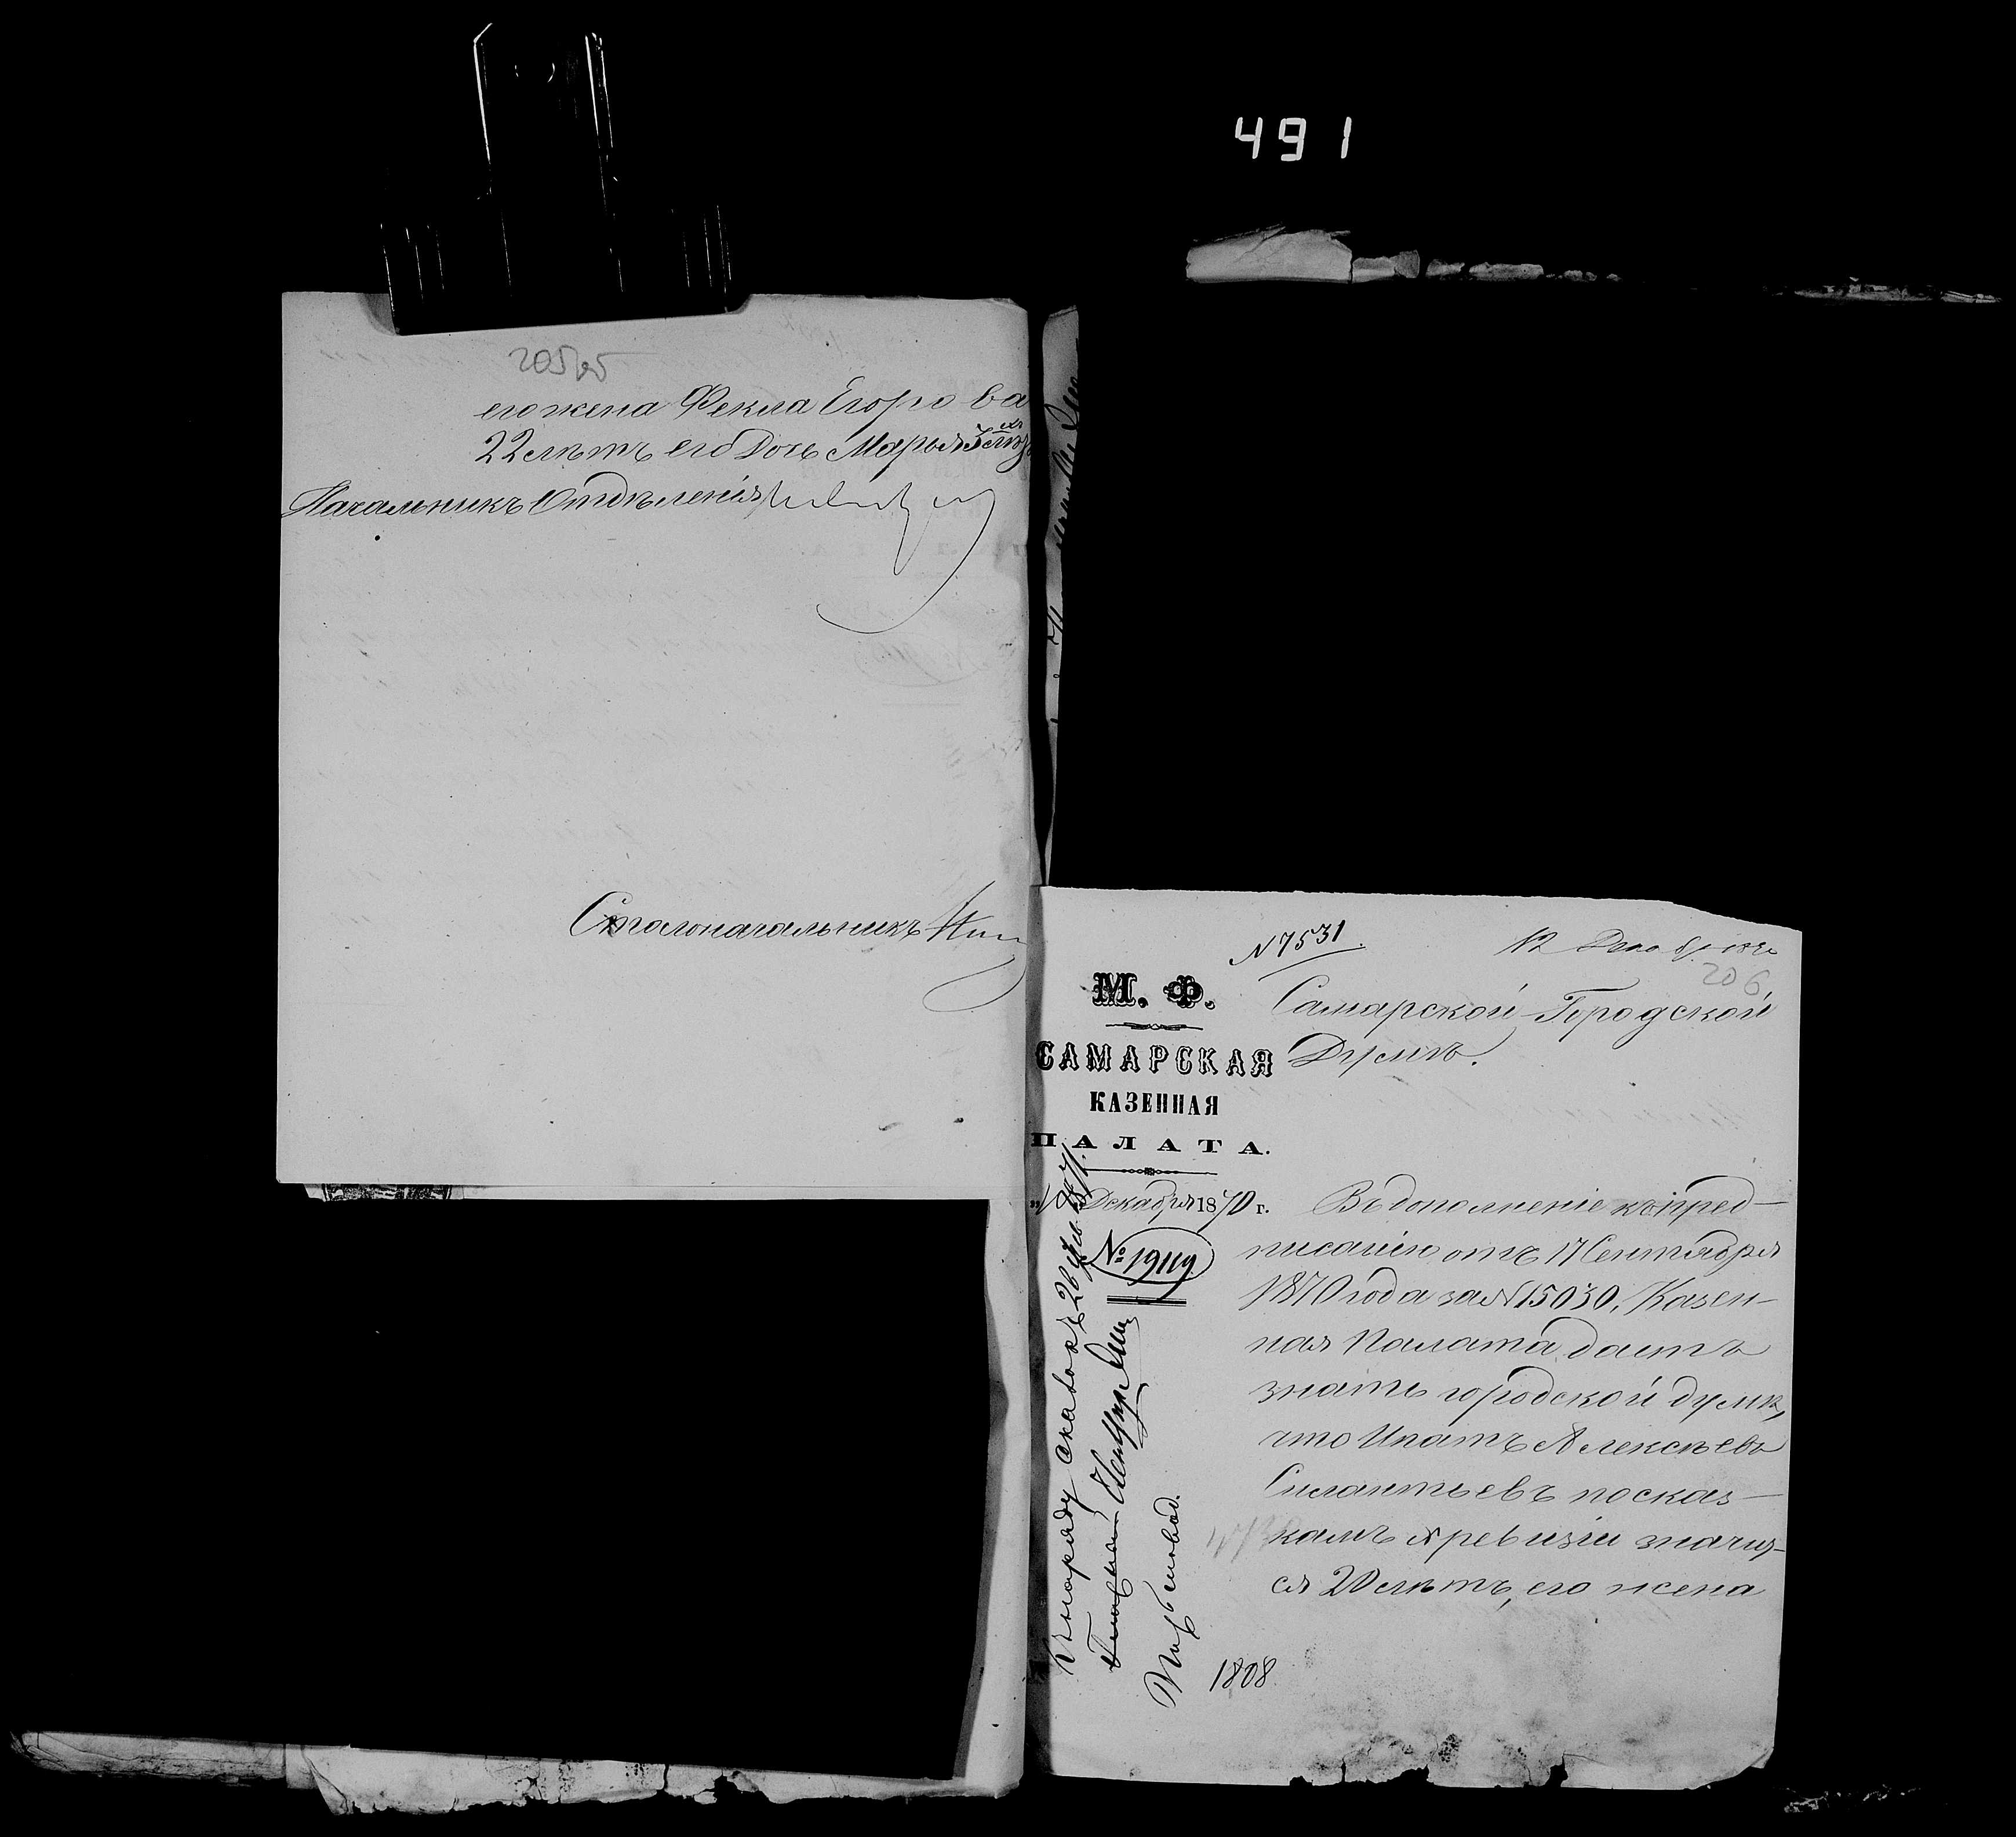 491
205об
его жена Фекла Егорова
22 лѣтъ его дочь Марья 3 лѣтъ
Начальникъ Отдѣленія
Столоначальникъ
N 7531.
12 Декабр 1870
206
Самарской Городской
Думѣ.
М. Ф.
САМАРСКАЯ
КАЗЕННАЯ
ПАЛАТА.
Декабря 1870 г.
№ 19119
Въ дополненіе къ пред-
писанію отъ 17 Сентября
1870 года за N 15030, Казен-
ная Палата даетъ
знать городской думѣ,
что Ипатъ Алексѣевъ
Силантьевъ по сказ-
камъ X ревизіи значи-
ся 20 лѣтъ, его жена
Къ наряду справокъ
1808